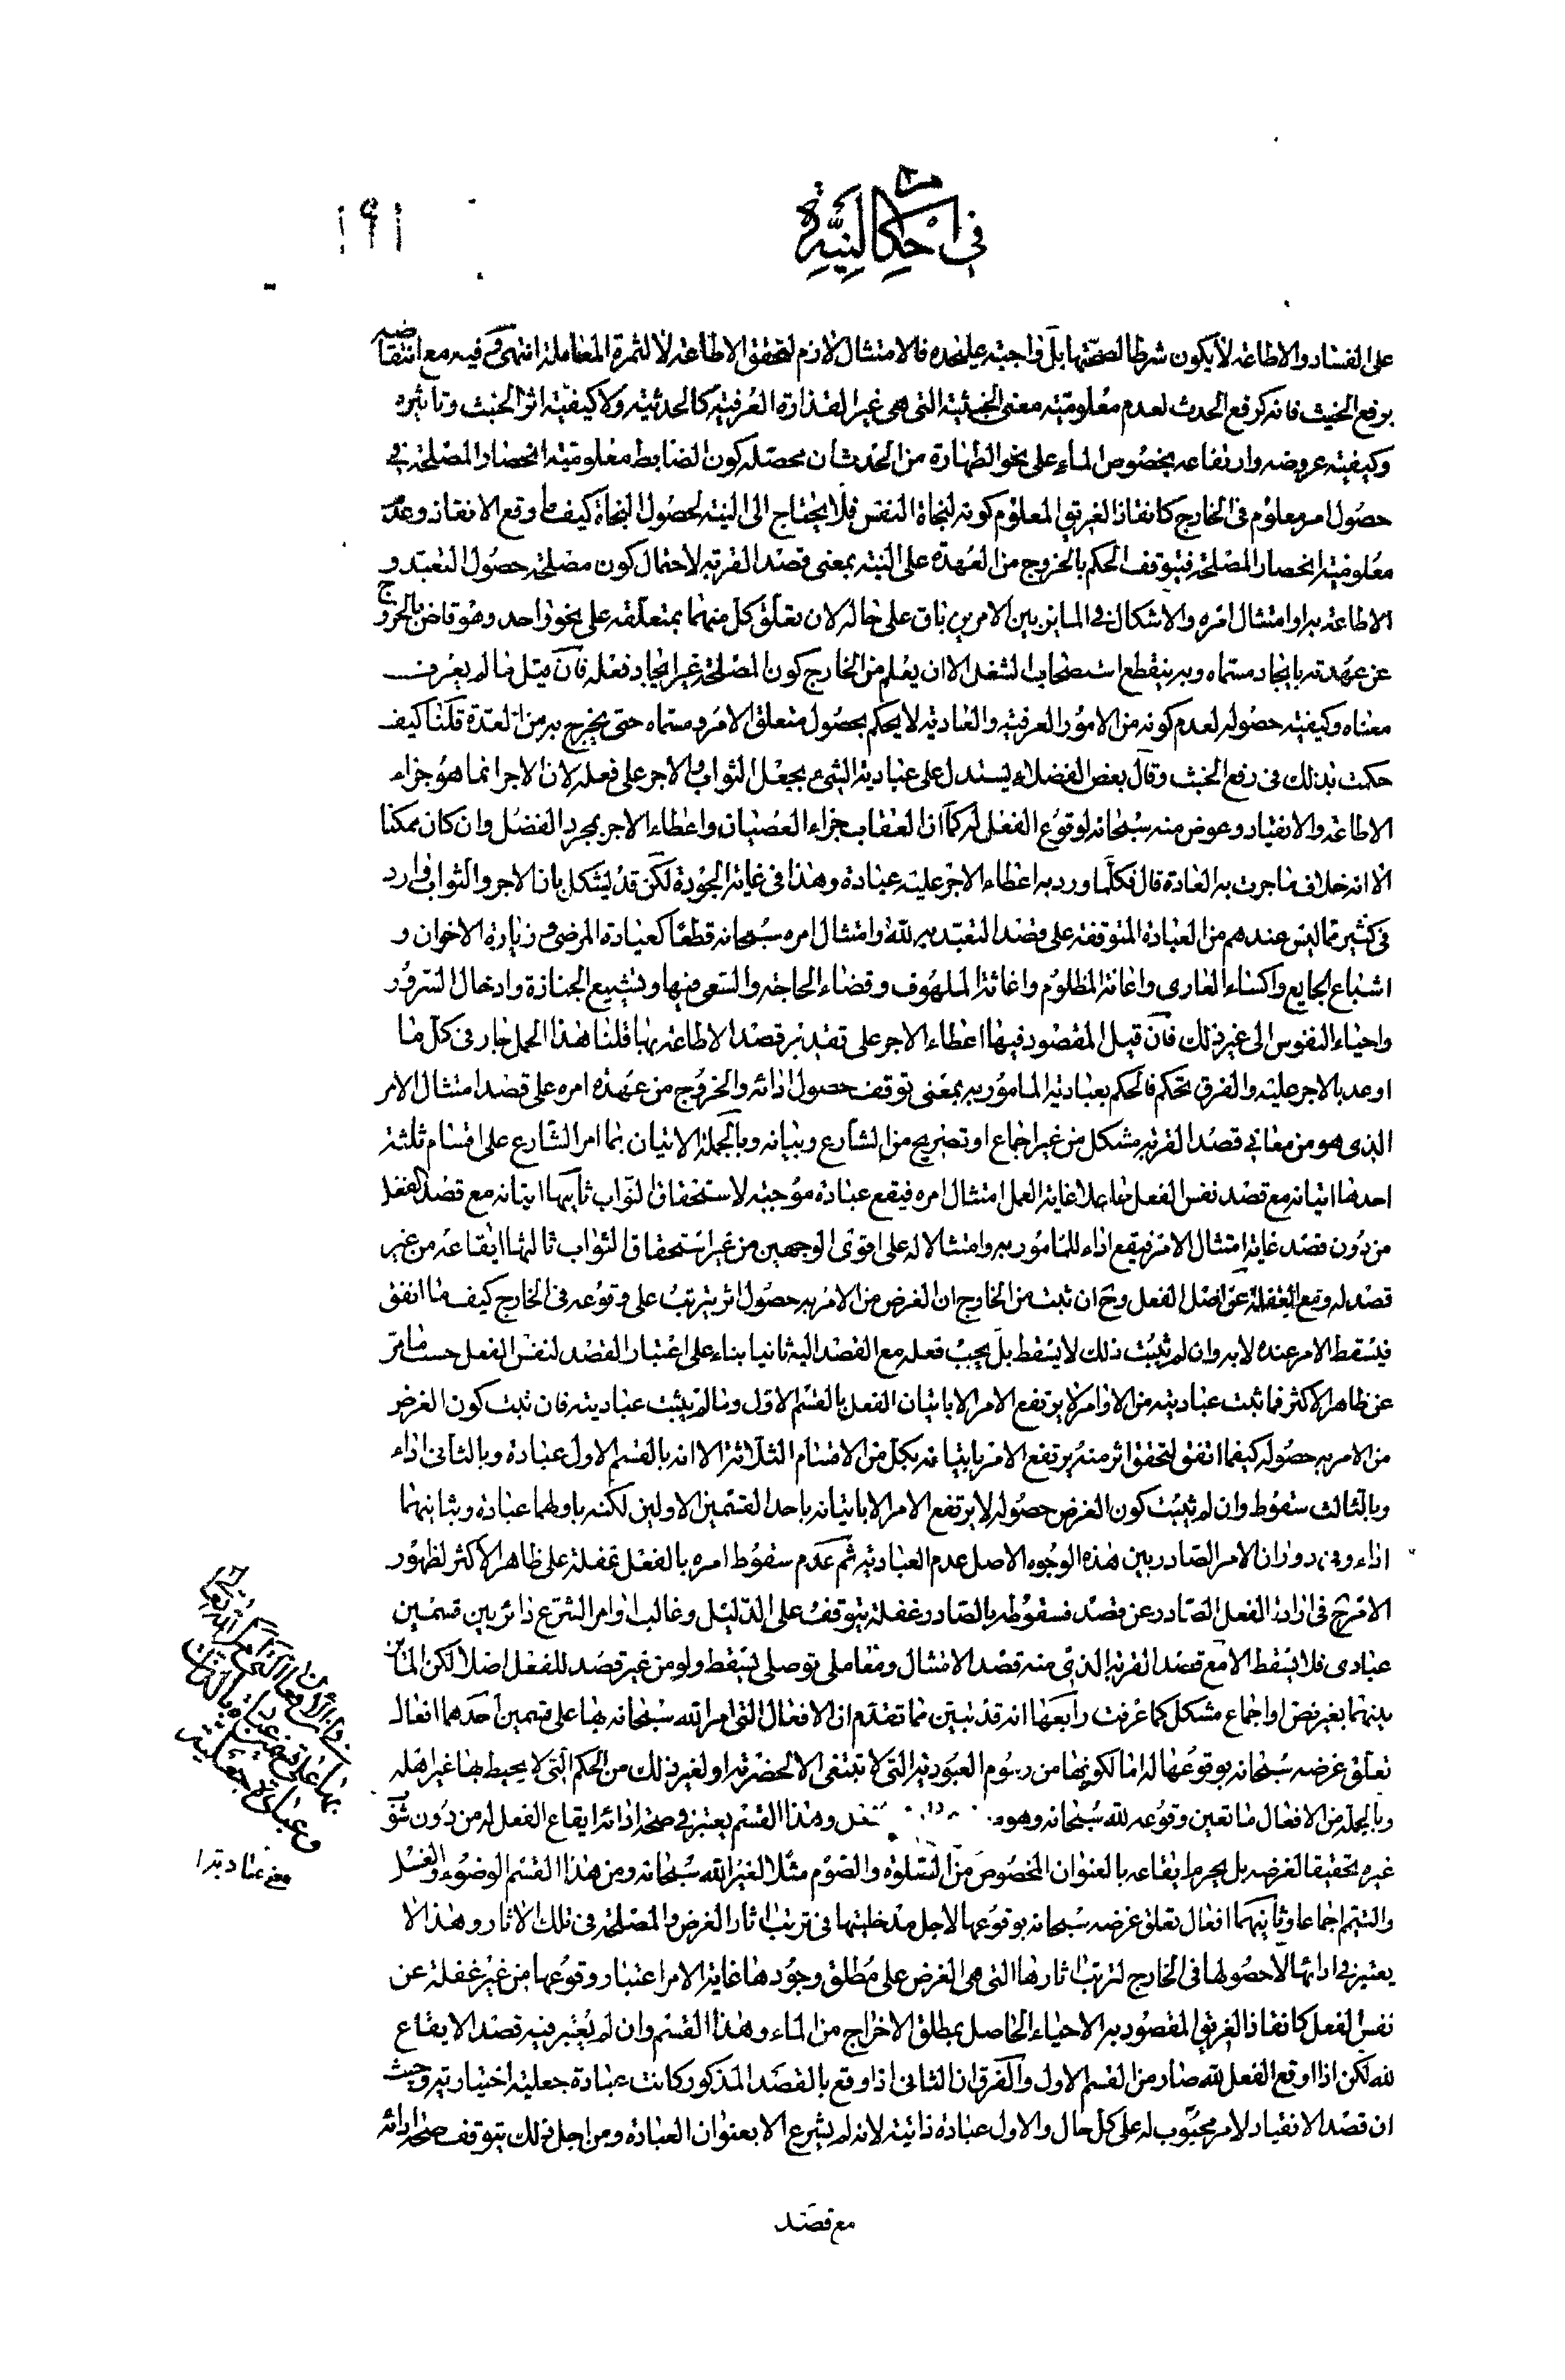 في احكام النية
١٩١
على الفساد والاطاعة لا يكون شرطا لصحتها بل واجبة عليحده فالامتثال لازم لتحقق الاطاعة لا لثمرة المعاملة انتهى وفيه مع انتقاضه
برفع الخبث فانه كرفع الحدث لعدم معلومية معنى الخبثية التي هي غير القذارة العرفية كالحدثية ولا كيفية اثر الخبث وتاثيره
وكيفية عروضه وارتفاعه بخصوص الماء على نحو الطهارة من الحدث ان محصله كون الضابط معلومية انحصار المصلحة في
حصول امر معلوم في الخارج كانقاذ الغريق المعلوم كونه لنجاة النفس فلا يحتاج الى النية لحصول النجاة كيف ما وقع الانقاذ وعدم
معلومية انحصار المصلحة فيتوقف الحكم بالخروج من العهدة على النية بمعنى قصد القربة لاحتمال كون مصلحته حصول التعبد و
الاطاعة به او امتثال امره والاشكال في المايز بين الامرين باق على حاله لان تعلق كل منهما بمتعلقه على نحو واحد وهو قاض بالخروج
عن عهدته بايجاد مسماه وبه ينقطع استصحاب الشغل الا ان يعلم من الخارج كون المصلحة غير ايجاد فعله فان قيل ما لم يعرف
معناه وكيفية حصوله لعدم كونه من الامور العرفية والعادية لا يحكم بحصول متعلق الامر ومسماه حتى يخرج به من العهدة قلنا كيف
حكمت بذلك في رفع الخبث وقال بعض الفضلاء يستدل على عبادية الشيء بجعل الثواب والاجر على فعله لان الاجر انما هو جزاء
الاطاعة والانقياد وعوض منه سبحانه لوقوع الفعل له كما ان العقاب جزاء العصيان واعطاء الاجر بمجرد الفضل وان كان ممكنا
الا انه خلاف ما جرت به العادة قال فكلما ورد به اعطاء الاجر عليه عبادة وهذا في غاية الجودة لكن قد يشكل بان الاجر والثواب وارد
في كثير مما ليس عندهم من العبادة المتوقفة على قصد التعبد به لله وامتثال امره سبحانه قطعا كعيادة المرضى وزيارة الاخوان و
اشباع الجايع واكساء العاري واعانة المظلوم واغاثة الملهوف وقضاء الحاجة والسعي فيها وتشييع الجنازة وادخال السرور
واحياء النفوس الى غير ذلك فان قيل المقصود فيها اعطاء الاجر على تقدير قصد الاطاعة بها قلنا هذا الحمل جار في كل ما
اوعد بالاجر عليه والفرق تحكم فالحكم بعبادية المامور به بمعنى توقف حصول ادائه والخروج من عهدة امره على قصد امتثال الامر
الذي هو من معاني قصد القربة مشكل من غير اجماع او تصريح من الشارع وبيانه وبالجملة الاتيان بما امر الشارع على اقسام ثلثة
احدها اتيانه مع قصد نفس الفعل جاعلا غاية العمل امتثال امره فيقع عبادة موجبة لاستحقاق الثواب ثانيها اتيانه مع قصد الفعل
من دون قصد غاية امتثال الامر فيقع اداء للمامور به وامتثالا له على اقوى الوجهين من غير استحقاق الثواب ثالثها ايقاعه من غير
قصد له ومع الغفلة عن اصل الفعل وح ان ثبت من الخارج ان الغرض من الامر به حصول اثر يترتب على وقوعه في الخارج كيف ما اتفق
فيسقط الامر عنده لا به وان لم يثبت ذلك لا يسقط بل يجب فعله مع القصد اليه ثانيا بناء على اعتبار القصد لنفس الفعل حسب ما مر
عن ظاهر الاكثر فما ثبت عباديته من الاوامر لا يرتفع الامر الا باتيان الفعل بالقسم الاول وما لم يثبت عباديته فان ثبت كون الغرض
من الامر به حصوله كيفما اتفق لتحقق اثر منه يرتفع الامر باتيانه بكل من الاقسام الثلاثة الا انه بالقسم الاول عبادة وبالثاني اداء
وبالثالث سقوط وان لم يثبت كون الغرض حصوله لا يرتفع الامر الا باتيانه باحد القسمين الاولين لكنه باولهما عبادة وبثانيهما
اداء وفي دوران الامر الصادر بين هذه الوجوه الاصل عدم العبادية ثم عدم سقوط امره بالفعل غفلة على ظاهر الاكثر لظهور
الامر ح في ارادة الفعل الصادر عن قصد فسقوطه بالصادر غفلة يتوقف على الدليل وغالب اوامر الشرع دائر بين قسمين
عبادي فلا يسقط الا مع قصد القربة الذي منه قصد الامتثال ومعاملي توصلي يسقط ولو من غير قصد للفعل اصلا لكن المايز
بينهما بغير نص او اجماع مشكل كما عرفت رابعها انه قد تبين مما تقدم ان الافعال التي امر الله سبحانه بها على قسمين احدهما افعال
تعلق غرضه سبحانه بوقوعها له اما لكونها من رسوم العبودية التي لا تبتغى الا لحضرته او لغير ذلك من الحكم التي لا يحيط بها غير اهله
وبالجملة من الافعال ما تعين وقوعه لله سبحانه وهو وهذا القسم يعتبر في صحة ادائه ايقاع الفعل له من دون شوب
غيره تحقيقا لغرضه بل يحرم ايقاعه بالعنوان المخصوص من الصلوة والصوم مثلا لغير الله سبحانه ومن هذا القسم الوضوء والغسل
والتيمم اجماعا وثانيهما افعال تعلق غرضه سبحانه بوقوعها لاجل مدخليتها في ترتب اثار الغرض والمصلحة في تلك الاثار وهذا لا
يعتبر في ادائها الا حصولها في الخارج لترتب اثارها التي هي الغرض على مطلق وجودها غاية الامر اعتبار وقوعها من غير غفلة عن
نفس الفعل كانقاذ الغريق المقصود به الاحياء الحاصل بمطلق الاخراج من الماء وهذا القسم وان لم يعتبر فيه قصد الايقاع
لله لكن اذا اوقع الفعل لله صار من القسم الاول والفرق ان الثاني اذا وقع بالقصد المذكور كانت عبادة جعلية اختيارية وحيث
ان قصد الانقياد لامر محبوب له على كل حال والاول عبادة ذاتية لانه لم يشرع الا بعنوان العبادة ومن اجل ذلك يتوقف صحة ادائه
مع قصد